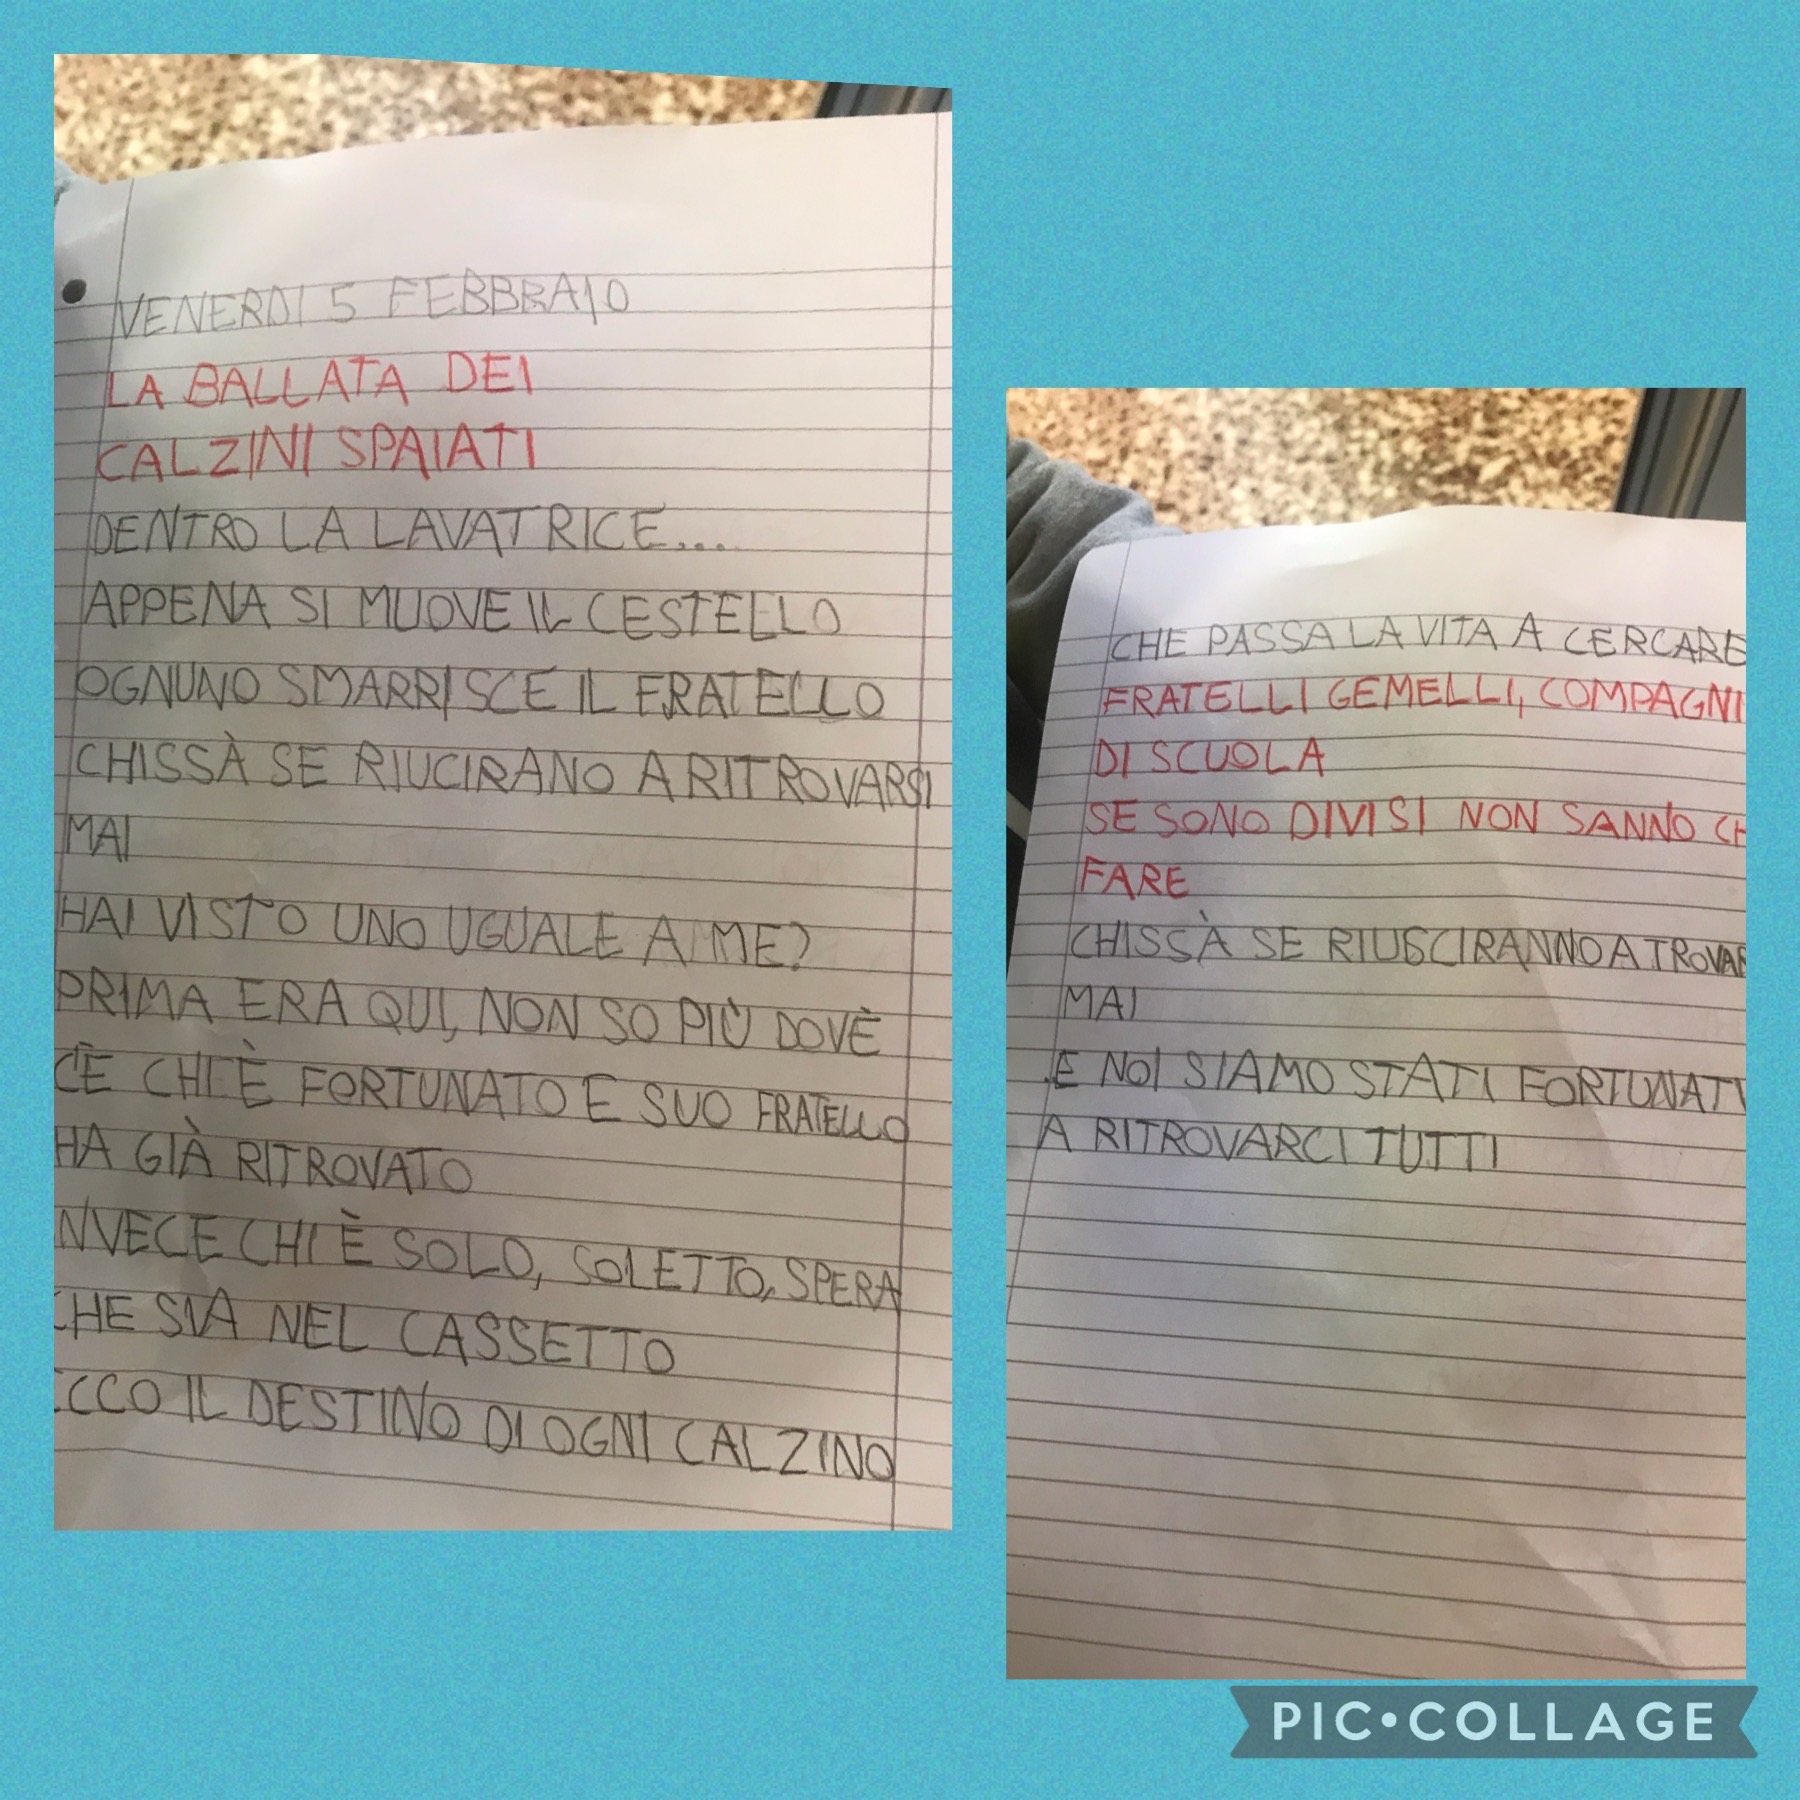 VENERDI 5 FEBBRAIO
LA BALLATA DEI
CALZINI SPAIATI
DENTRO LA LAVATRICE...
APPENA SI MUOVE IL CESTELLO
OGNUNO SMARRISCE IL FRATELLO
CHISSÀ SE RIUCIRANO A RITROVARSI
MAI
HAI VISTO UNO UGUALE A ME?
PRIMA ERA QUI, NON SO PIÙ DOVÈ
C'È CHI È FORTUNATO E SUO FRATELLO
HA GIÀ RITROVATO
NVECE CHI È SOLO, SOLETTO, SPERA
CHE SIA NEL CASSETTO
ECCO IL DESTINO DI OGNI CALZINO
CHE PASSA LA VITA A CERCARE
FRATELLI GEMELLI, COMPAGNI
DI SCUOLA
SE SONO DIVISI NON SANNO CH
FARE
CHISSÀ SE RIUSCIRANNO A TROVAR
MAI
E NOI SIAMO STATI FORTUNATI
A RITROVARCI TUTTI
PIC•COLLAGE